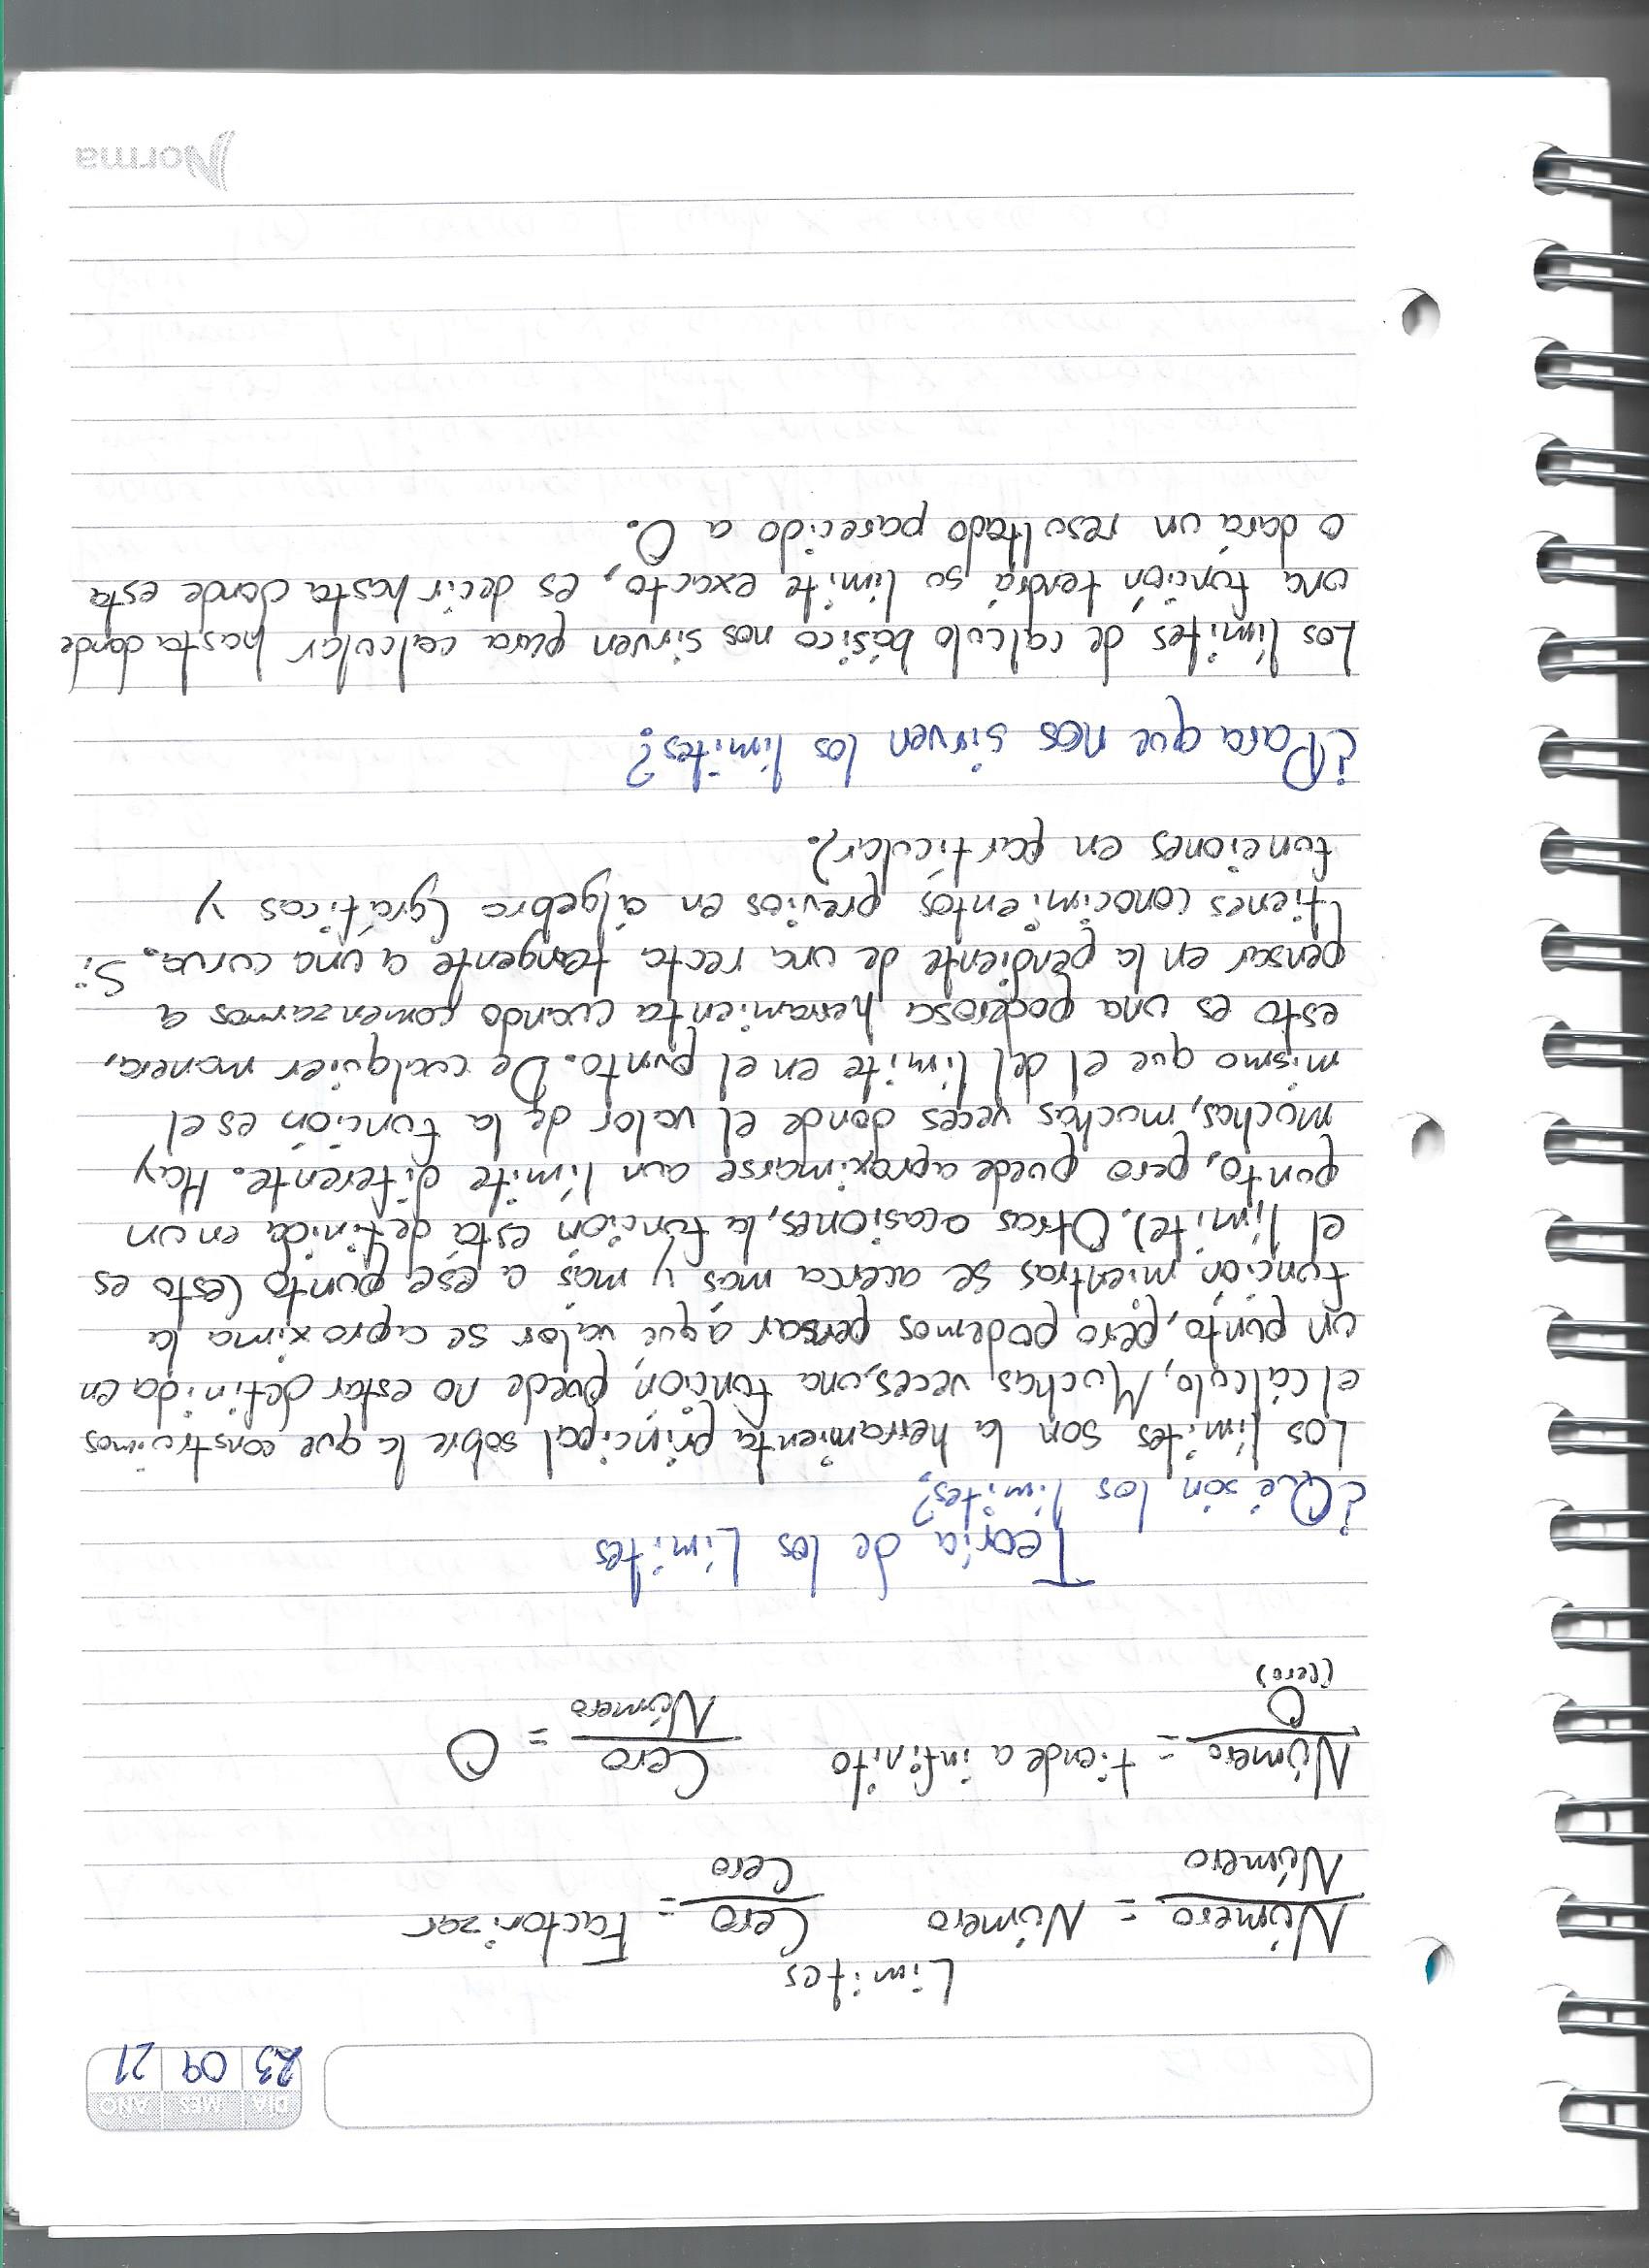 DÍA MES AÑO
23 09 21
Limites
Número = Número Cero = Factorizar
Número Cero
Número = tiende a infinito Cero = 0
0 Número
(Cero)
Teoría de los Límites
¿Qué són los límites?
Los límites son la herramienta principal sobre la que construimos
el cálculo, Muchas veces, una función puede no estar definida en
un punto, pero podemos pensar a qué valor se aproxima la
función mientras se acerca más y más a ese punto (esto es
el límite). Otras ocasiones, la función está definida en un
punto, pero puede aproximarse a un límite diferente. Hay
muchas, muchas veces donde el valor de la función es el
mismo que el del limite en el punto. De cualquier manera,
esto es una poderosa herramienta cuando comenzamos a
pensar en la pendiente de una recta tangente a una curva. Si
tienes conocimientos previos en álgebra (gráficas y
funciones en partícular).
¿Para que nos sirven los límites?
Los límites de calculo básico nos sirven para calcular hasta donde
una función tendrá su limite exacto, es decir hasta donde esta
o dará un resultado parecido a 0.
Norma